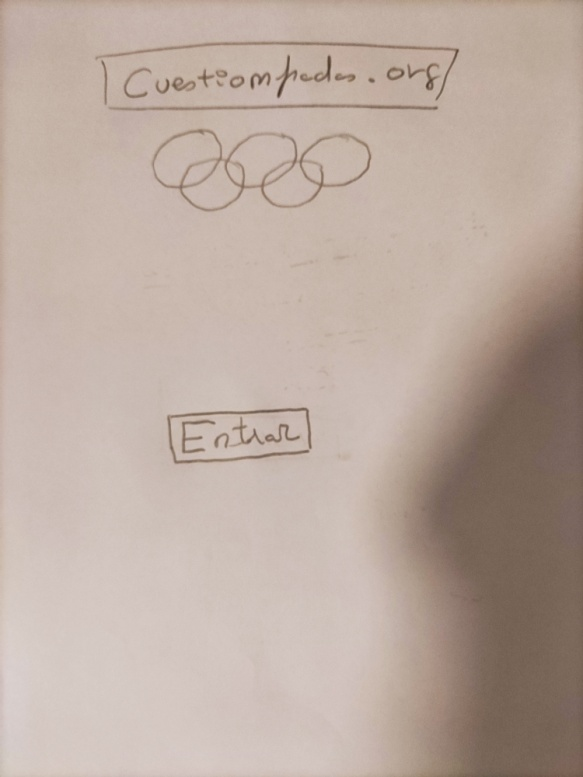 Cuestiompiadas.org
Entrar